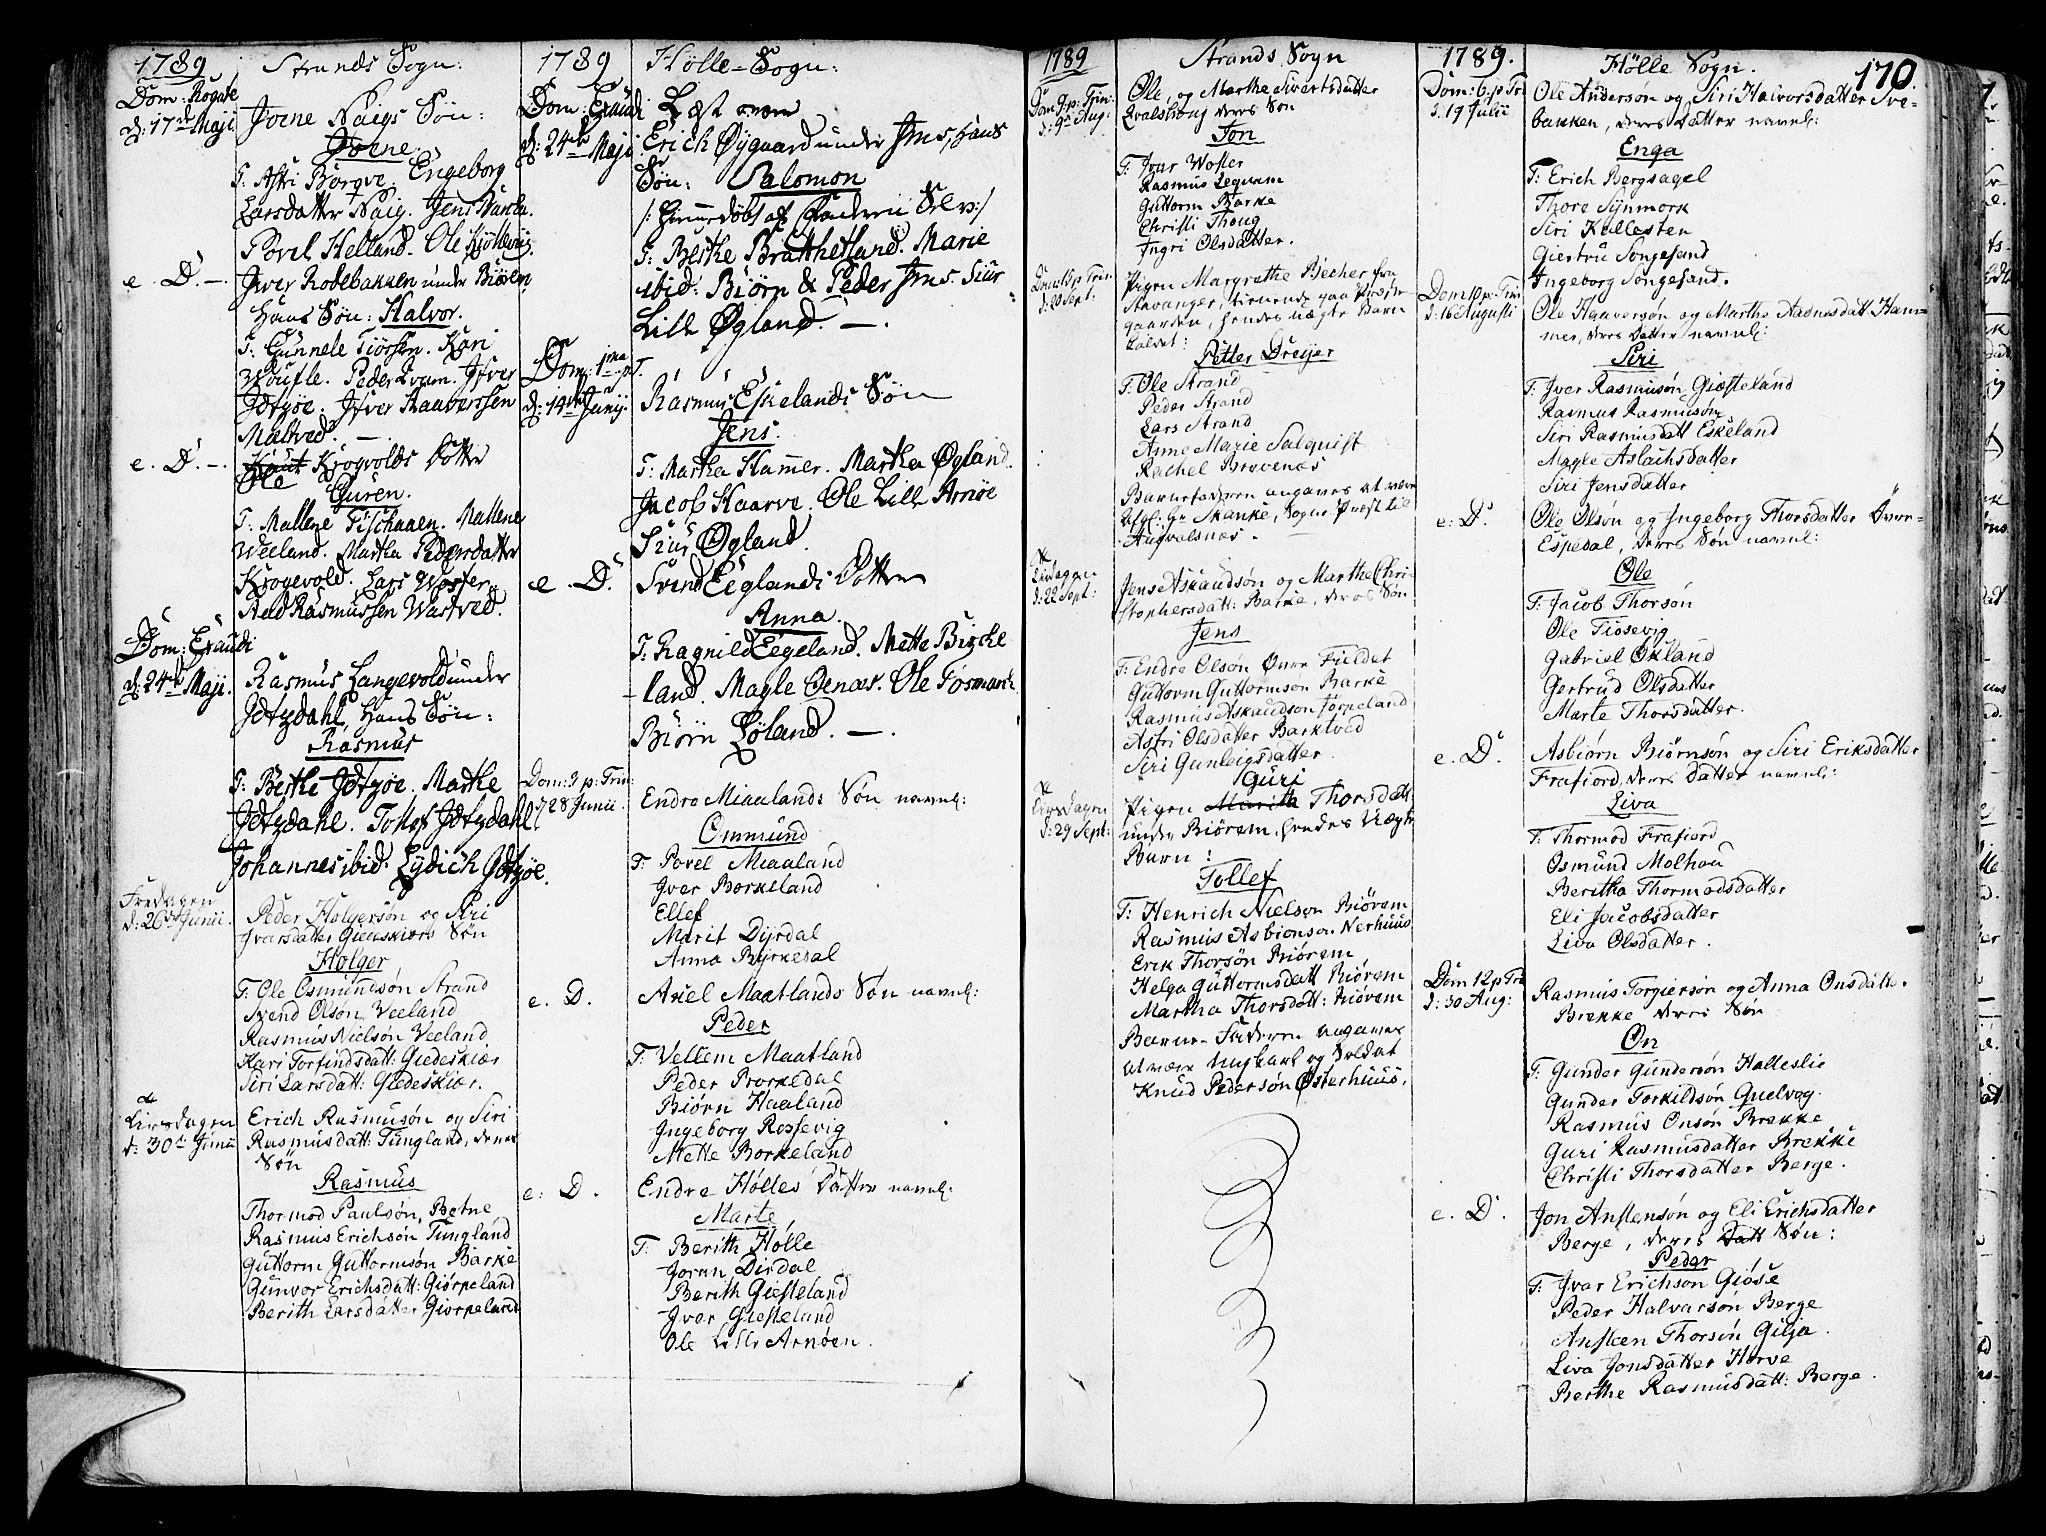 1789
Strands Sogn:
Dom: Rogate
d: 17de Maji
Joene Naigs Søn:
Joene.
T: Astri Borgve, Engeborg
Larsdatter Naig. Jens
Povel Helland. Ole
e. D. —
Jver Rodebakken under Biørem
Hans Søn: Halvor.
T: Gunnele Tiørsen. Kari
Peder Qvam. Jfver
Jfver
e. D. —
Krogvolds Dotter
Guren.
T: Mallene Tischaaen. Mallene
Weeland. Martha Pedersdatter
Krogevold. Lars Woster
Aad Rasmussen Wastved.
Dom: Exaudi
d: 24de Maji.
Rasmus Langevold under
Jdtzdahl, Hans Søn:
Rasmus
T: Berthe Jdtzøe. Marthe
Jdtzdahl. Tollef Jdtzdahl
Johannes ibid. Lydich Jdtzøe.
Fredagen
d: 26de Junii.
Peder Holgersøn og Siri
Jvarsdatter Giedeskiærs Søn
Holger
T: Ole Osmundsøn Strand
Svend Olsøn Veeland
Rasmus Nielsøn Veeland
Kari Torfindsdatt: Giedeskiær
Siri Larsdatt: Giedeskiær.
Tirsdagen
d: 30te Junii
Erich Rasmusøn og Siri
Rasmusdatt: Tungland, deres
Søn
Rasmus
Thormod Paulsøn, Botne
Rasmus Erichsøn Tungland
Guttorm Guttormsøn Barke
Gunvor Erichsdatt: Giørpeland
Berith Larsdatter Giørpeland
1789
Hølle-Sogn:
Dom: Exaudi
d: 24de Maji
Læst over
Erich Øygaard under Jms, hans
Søn: Salomon
/: Hiemmedøbt af Faderen Selv:/
T: Berthe Brathetland. Marie
ibid: Biørn & Peder Jms. Siur
Lille Øgland. —.
Dom: 1ma p T.
d: 14de Junij.
Rasmus Eskelands Søn
Jens.
T: Martha Hammer. Martha Øgland.
Jacob Haarve. Ole Lille Arnøe
Siur Øgland.
e. D.
Svend Eiglands Dotter
Anna.
T: Ragnild Eigeland. Mette
land. Magle
Biørn Løland. —.
Dom: 3 p: Trin:
28 Junii.
Endre Miaalands Søn navnl:
Ommund
T: Povel Miaaland
Jver Borkeland
Ellef
Marit Dijrdal
Anna Byrkedal
e. D.
Axel Maatlands Søn navnl:
Peder
T: Vellem Maatland
Peder Borkedal
Biørn Haaland
Jngeborg Rossevig
Mette Borkeland
e: D.
Endre Hølles Datter navnl:
Marte
T: Berith Hølle
Joran Dirdal
Berith Giesteland
Jver Giesteland
Ole Lille Arnøen.
1789
Strands Sogn
Dom 9 p: Trin:
d: 9de Aug.
Ole, og Marthe Sivertsdatter
deres Søn
Jon
T: Jvar Woster
Rasmus Leqvam
Guttorm Barke
Christi Thoug
Jngri Olsdatter.
d: 20 Sept:
Pigen Margrethe Becher fra
Stavanger, tienende paa Præste
gaarden, hendes uægte Barn
kaldet:
Petter Dreyer
T: Ole Strand
Peder Strand
Lars Strand
Anne Marie Salquist
Rachel Brevenæs
Barnefaderen angaves at være
Hr Skanke, Sogne Præst til
Augvalsnæs.
Tirsdagen
d: 22 Sept:
Jens Askaudsøn og Marthe Chri-
stophersdatt: Barke, deres Søn
Jens
T: Endre Olsøn Øvre Fieldet
Guttorm Guttormsøn Barke
Rasmus Askaudsøn Jørpeland
Astri Olsdatter Barktved
Siri Gunleigsdatter.
Tirsdagen
d: 29 Sept:
Guri
Pigen Marith Thorsdatt:
under Biørem, hendes Uægte
Barn:
Tollef
T: Henrich Nielsen Biørem
Rasmus Asbiønsen Nerhuus
Erik Thorsøn Biørem
Helga Guttormsdatt Biørem
Martha Thorsdatt: Biørem
Barne-Faderen angaves
at være Ungkarl og Soldat
Knud Pedersøn Østerhuus.
1789.
Hölle Sogn.
170.
Dom: 6. p Tri
d. 19 Julii
Ole Andersøn og Siri Halvorsdatter Sve-
bakken, deres Datter navnl:
Enga
T: Erich Bergsagel
Thore Synmork
Siri Kallesten
Giertru Songesand
Jngeborg Songesand.
Dom 10 p: Tri
d: 16 Augusti
Ole Haaversøn og Marthe Aadnesdatt Ham-
mer, deres Datter navnl:
Siri
T: Jver Rasmusøn Giesteland
Rasmus Rasmusøn
Siri Rasmusdatt Eskeland
Magle Aslachsdatter
Siri Jensdatter
e: D.
Ole Olsøn og Jngeborg Thorsdatter Øvre-
Espedal, deres Søn navnl:
Ole
T: Jacob Thorsøn
Ole Tiosevig
Gabriel Økland
Gertrud Olsdatter
Marte Thorsdatter.
e. D.
Asbiørn Biørnsøn og Siri Eriksdatter
Frafiord, deres Datter navnl:
Liva
T: Thormod Frafiord
Osmund Molhau
Beritha Thormodsdatter
Eli Jacobsdatter
Liva Olsdatter.
Dom 12 p Tri
d: 30 Aug:
Rasmus Torgiersøn og Anna Onsdatt.
Brekke deres Søn
On
T: Gunder Gundersøn Halleslie
Gunder Torkildsøn Quelvog
Rasmus Onsøn Brekke
Guri Rasmusdatter Brekke
Christi Thorsdatter Berge.
e. D.
Jon Anstensøn og Eli Erichsdatter
Berge, deres Datt Søn:
Peder
T: Jvar Erichson Giøse
Peder Halvarsøn Berge
Ansteen Thorsøn Gilja.
Liva Jonsdatter Herve
Berthe Rasmusdatt: Berge.